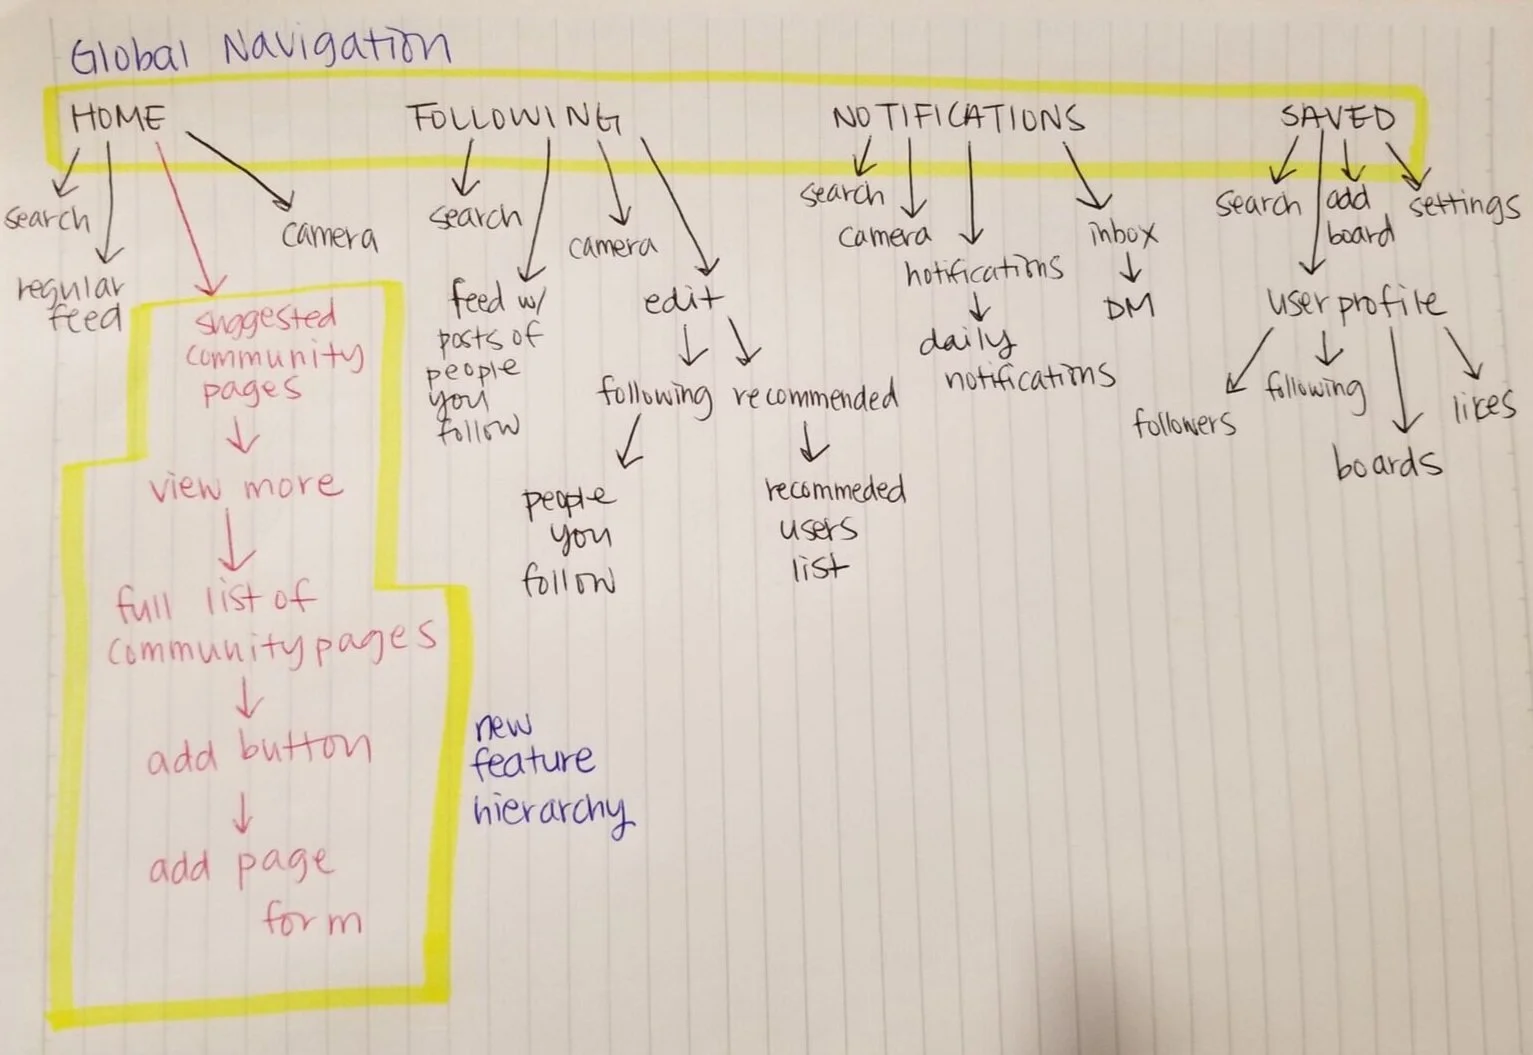 Global Navigation
HOME
FOLLOWING
NOTIFICATIONS
SAVED
search
regular
feed
camera
suggested
community
pages
view more
full list of
community pages
add button
add page
form
new
feature
hierarchy
search
feed w/
posts of
people
you
follow
camera
edit
following
people
you
follow
recommended
recommeded
users
list
search
camera
notifications
daily
notifications
inbox
DM
search
add
board
settings
user profile
followers
following
boards
likes